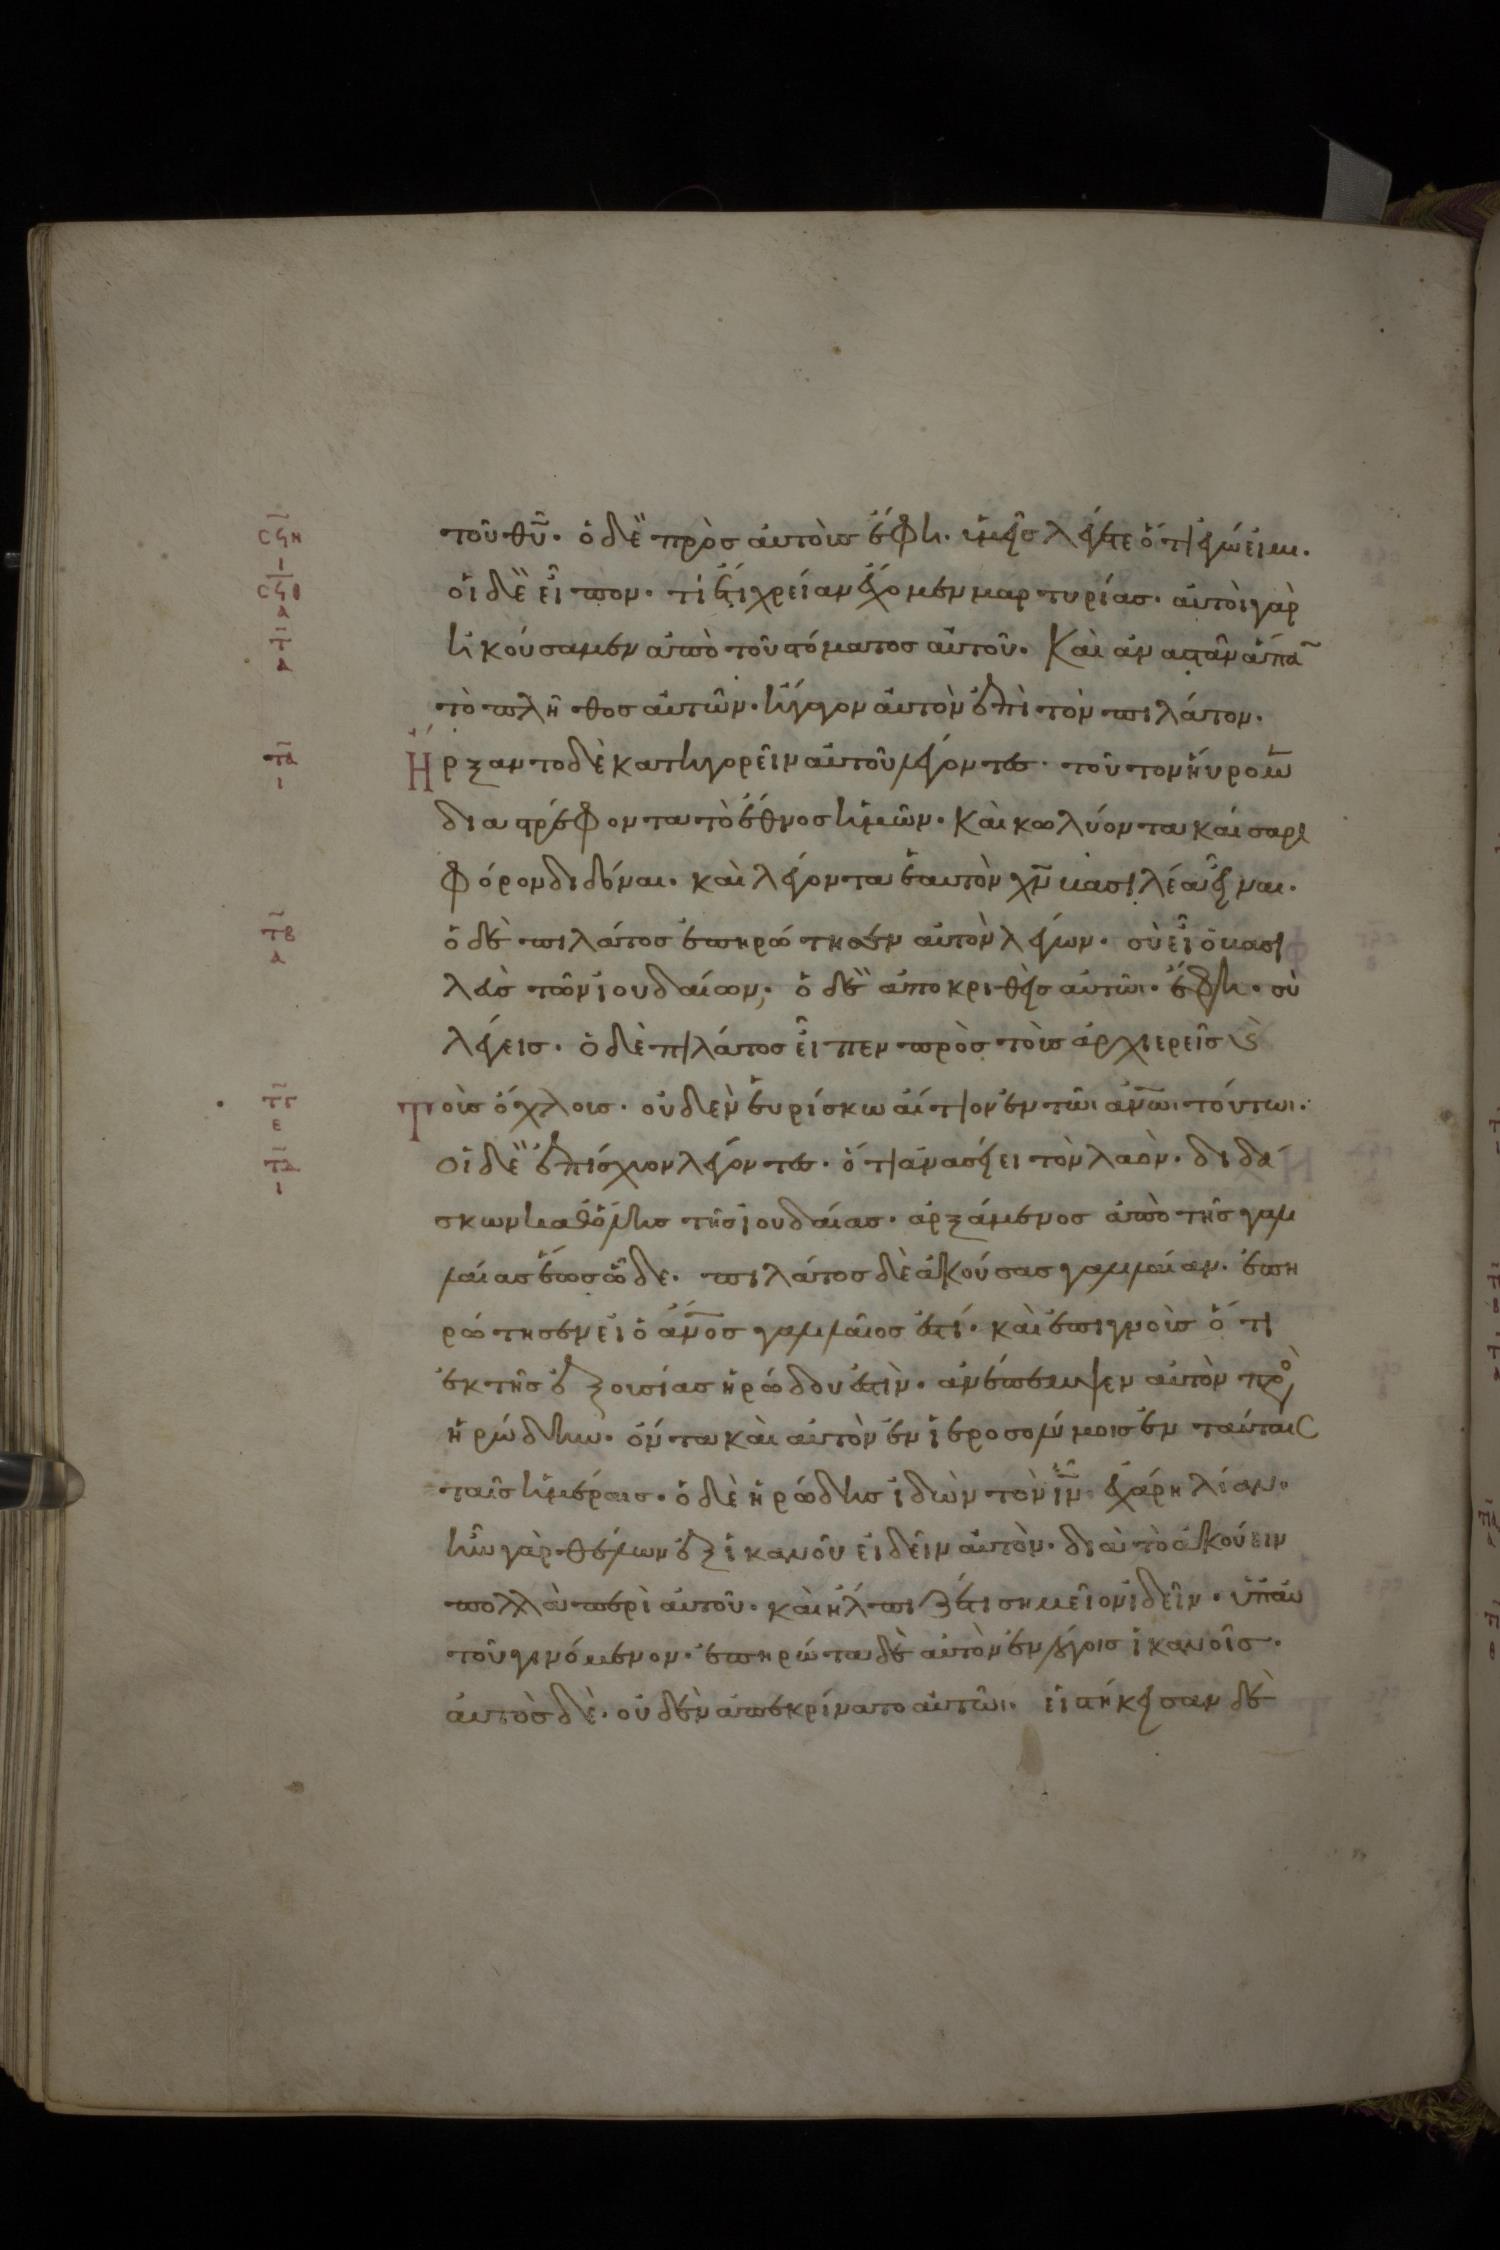 σϟη
ι
σϟθ
α
τ
α
τα
ι
τβ
α
τγ
ε
τδ
ι
τοῦ θῦ. ὁ δὲ πρὸς αὐτοὺς ἔφη. ὑμεῖς λέγετε ὅτι ἐγώ εἰμι.
οἱ δὲ εἶπον. τί ἔτι χρείαν ἔχομεν μαρτυρίας. αὐτοὶ γὰρ
ἠκούσαμεν ἀπὸ τοῦ στόματος αὐτοῦ. Καὶ ἀναστὰν ἅπα
τὸ πλῆθος αὐτῶν. ἤγαγον αὐτὸν ἐπὶ τὸν πιλάτον.
Ἤρξαντο δὲ κατηγορεῖν αὐτοῦ λέγοντες. τοῦτον ηὕρομ
διαστρέφοντα τὸ ἔθνος ἡμῶν. καὶ κωλύοντα καίσαρι
φόρον διδόναι. καὶ λέγοντα ἑαυτὸν χν βασιλέα εἶναι.
ὁ δὲ πιλάτος ἐπηρώτησεν αὐτὸν λέγων. σὺ εἶ ὁ βασι
λεὺς τῶν ἰουδαίων; ὁ δὲ ἀποκριθεὶς αὐτῶι. ἔφη. σὺ
λέγεις. ὁ δὲ πιλάτος εἶπεν πρὸς τοὺς ἀρχιερεῖς ϗ
Τοὺς ὄχλους. οὐδὲν εὑρίσκω αἴτιον ἐν τῶι ἀνωι τούτωι.
οἱ δὲ ἐπίσχυον λέγοντες. ὅτι ἀνασείει τὸν λαὸν. διδά
σκων καθ' ὅλης τῆς ἰουδαίας. ἀρξάμενος ἀπὸ τῆς γαλι
λαίας ἕως ὧδε. πιλάτος δὲ ἀκούσας γαλιλαίαν. ἐπη
ρώτησεν εἰ ὁ ἄνος γαλιλαῖος ἐστί. καὶ ἐπιγνοὺς ὅτι
ἐκ τῆς ἐξουσίας ἡρώδου ἐστὶν. ἀνέπεμψεν αὐτὸν πρὸ
ἡρώδην. ὄντα καὶ αὐτὸν ἐν ἱεροσολύμοις ἐν ταύταις
ταῖς ἡμέραις. ὁ δὲ ἡρώδης ἰδὼν τὸν ιν ἐχάρη λίαν.
ἦν γὰρ θέλων ἐξ ἱκανοῦ ἰδεῖν αὐτὸν. διὰ τὸ ἀκούειν
πολλὰ περὶ αὐτοῦ. καὶ ἤλπιζέ τι σημεῖον ἰδεῖν. ὑπ' αὐ
τοῦ γινόμενον. ἐπηρώτα δὲ αὐτὸν ἐν λόγοις ἱκανοῖς.
αὐτὸς δὲ. οὐδὲν ἀπεκρίνατο αὐτῶι. εἱστήκεισαν δὲ